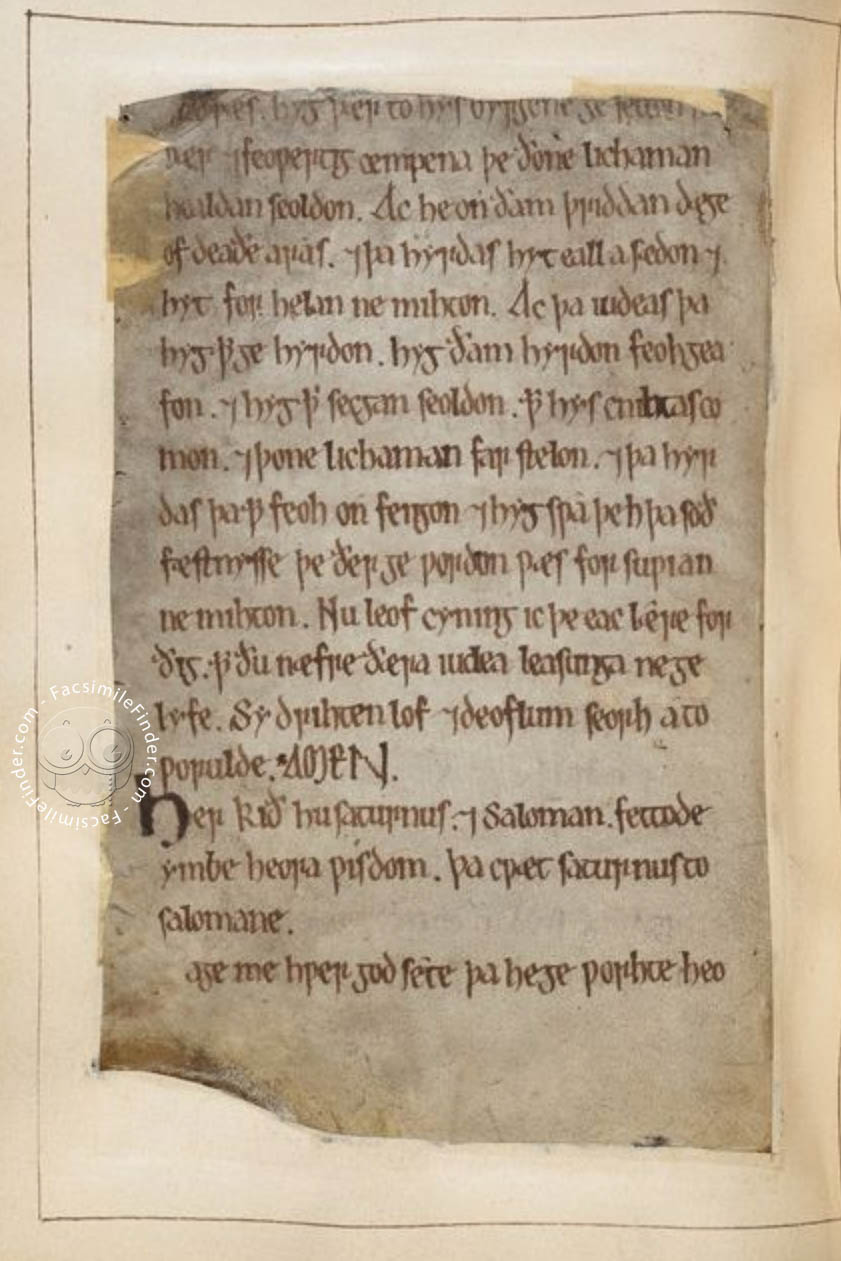 hyg þær to hys byrgene ge setton
ner ⁊ feoƿertig cempena þe ðone lichaman
healdan seoldon. Ac he on ðam þriddan dæge
of deaðe aras. ⁊ þa hyrdas hyt eall asædon ⁊
hyt for helan ne mihton. Ac þa iudeas þa
hyg ꝥ ge hyrdon. hyg ðam hyrdon feoh gea
fon. ⁊ hyg ꝥ secgan seoldon. ꝥ hys cnihtas co
mon. ⁊ þone lichaman for stelon. ⁊ þa hyr
das þa ꝥ feoh on fengon ⁊ hyg sƿa þeh þa soð
fæstnysse þe ðer ge ƿordon ƿæs for suƿian
ne mihton. Nu leof cyning ic þe eac lære for
ðig. ꝥ ðu næfre ðera iudea leasunga ne ge
lyfe. Sy drihten lof ⁊ deoflum seorh a to
ƿorulde. AMEN.
Her kið hu saturnus. ⁊ Saloman. fettode
ymbe heora ƿisdom. þa cƿæt saturnus to
salomane.
age me hƿer god sete þa he ge ƿorhte heo
FacsimileFinder.com - FacsimileFinder.com -